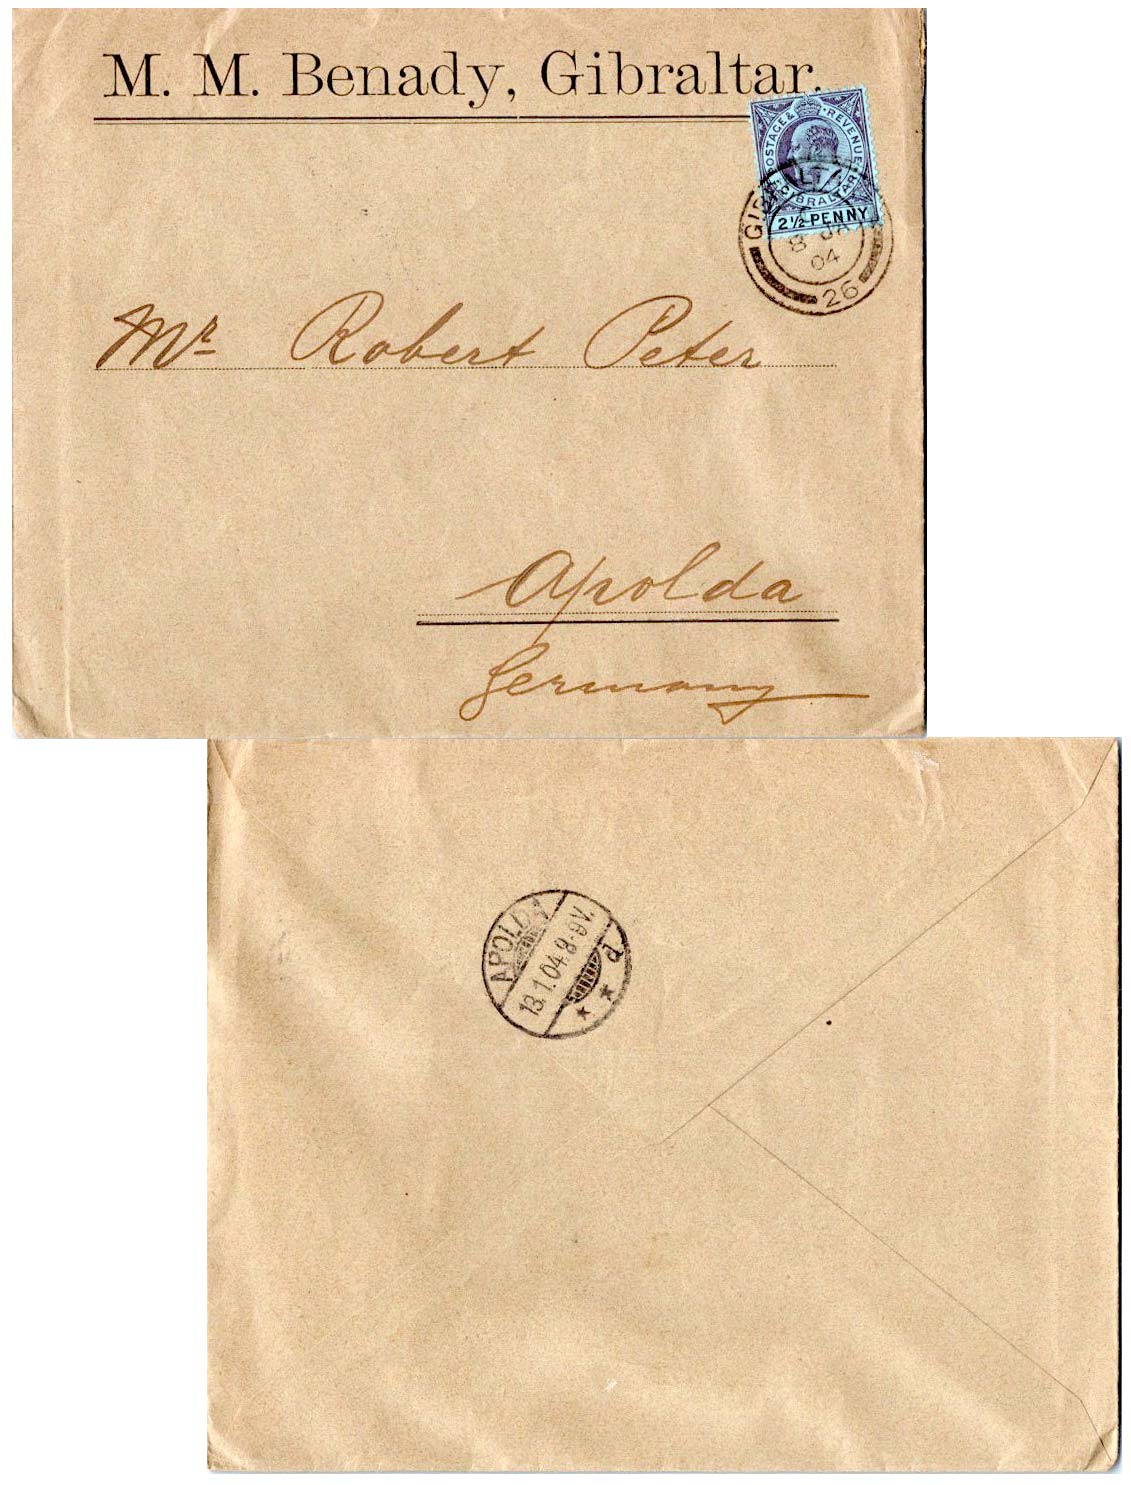 M. M. Benady, Gibraltar.
POSTAGE & REVENUE
GIBRALTAR
2½ PENNY
GIBRALTA
8 JA
04
26
Mr Robert Peter
Apolda
Germany
APOLDA
13.1.04.8-9V.
* * d